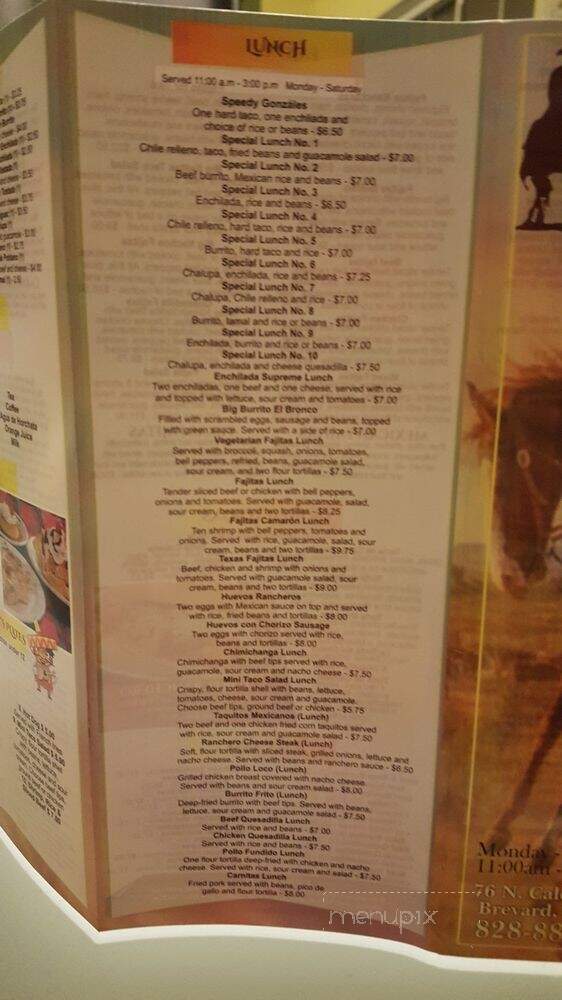 LUNCH
Served 11:00 a.m - 3:00 p.m Monday - Saturday
Speedy Gonzales
One hard taco, one enchilada and
choice of rice or beans - $6.50
Special Lunch No. 1
Chile relleno, taco, fried beans and guacamole salad - $7.00
Special Lunch No. 2
Beef burrito, Mexican rice and beans - $7.00
Special Lunch No. 3
Enchilada, rice and beans - $6.50
Special Lunch No. 4
Chile relleno, hard taco, rice and beans - $7.00
Special Lunch No. 5
Burrito, hard taco and rice - $7.00
Special Lunch No. 6
Chalupa, enchilada, rice and beans - $7.25
Special Lunch No. 7
Chalupa, Chile relleno and rice - $7.00
Special Lunch No. 8
Burrito, tamal and rice or beans - $7.00
Special Lunch No. 9
Enchilada, burrito and rice or beans - $7.00
Special Lunch No. 10
Chalupa, enchilada and cheese quesadilla - $7.50
Enchilada Supreme Lunch
Two enchiladas, one beef and one cheese, served with rice
and topped with lettuce, sour cream and tomatoes - $7.00
Big Burrito El Bronco
Filled with scrambled eggs, sausage and beans, topped
with green sauce. Served with a side of rice - $7.00
Vegetarian Fajitas Lunch
Served with broccoli, squash, onions, tomatoes,
bell peppers, refried, beans, guacamole salad,
sour cream, and two flour tortillas - $7.50
Fajitas Lunch
Tender sliced beef or chicken with bell peppers,
onions and tomatoes. Served with guacamole, salad,
sour cream, beans and two tortillas - $8.25
Fajitas Camarón Lunch
Ten shrimp with bell peppers, tomatoes and
onions. Served with rice, guacamole, salad, sour
cream, beans and two tortillas - $9.75
Texas Fajitas Lunch
Beef, chicken and shrimp with onions and
tomatoes. Served with guacamole salad, sour
cream, beans and two tortillas - $9.00
Huevos Rancheros
Two eggs with Mexican sauce on top and served
with rice, fried beans and tortillas - $8.00
Huevos con Chorizo Sausage
Two eggs with chorizo served with rice,
beans and tortillas - $8.00
Chimichanga Lunch
Chimichanga with beef tips served with rice,
guacamole, sour cream and nacho cheese - $7.50
Mini Taco Salad Lunch
Crispy, flour tortilla shell with beans, lettuce,
tomatoes, cheese, sour cream and guacamole.
Choose beef tips, ground beef or chicken - $5.75
Taquitos Mexicanos (Lunch)
Two beef and one chicken fried corn taquitos served
with rice, sour cream and guacamole salad - $7.50
Ranchero Cheese Steak (Lunch)
Soft, flour tortilla with sliced steak, grilled onions, lettuce and
nacho cheese. Served with beans and ranchero sauce - $6.50
Pollo Loco (Lunch)
Grilled chicken breast covered with nacho cheese.
Served with beans and sour cream salad - $8.00
Burrito Frito (Lunch)
Deep-fried burrito with beef tips. Served with beans,
lettuce, sour cream and guacamole salad - $7.50
Beef Quesadilla Lunch
Served with rice and beans - $7.00
Chicken Quesadilla Lunch
Served with rice and beans - $7.50
Pollo Fundido Lunch
One flour tortilla deep-fried with chicken and nacho
cheese. Served with rice, sour cream and salad - $7.50
Carnitas Lunch
Fried pork served with beans, pico de
gallo and flour tortilla - $8.00
Tea
Coffee
Agua de Horchata
Orange Juice
Milk
Monday -
11:00am -
76 N. Cal
Brevard,
828-88
menupix